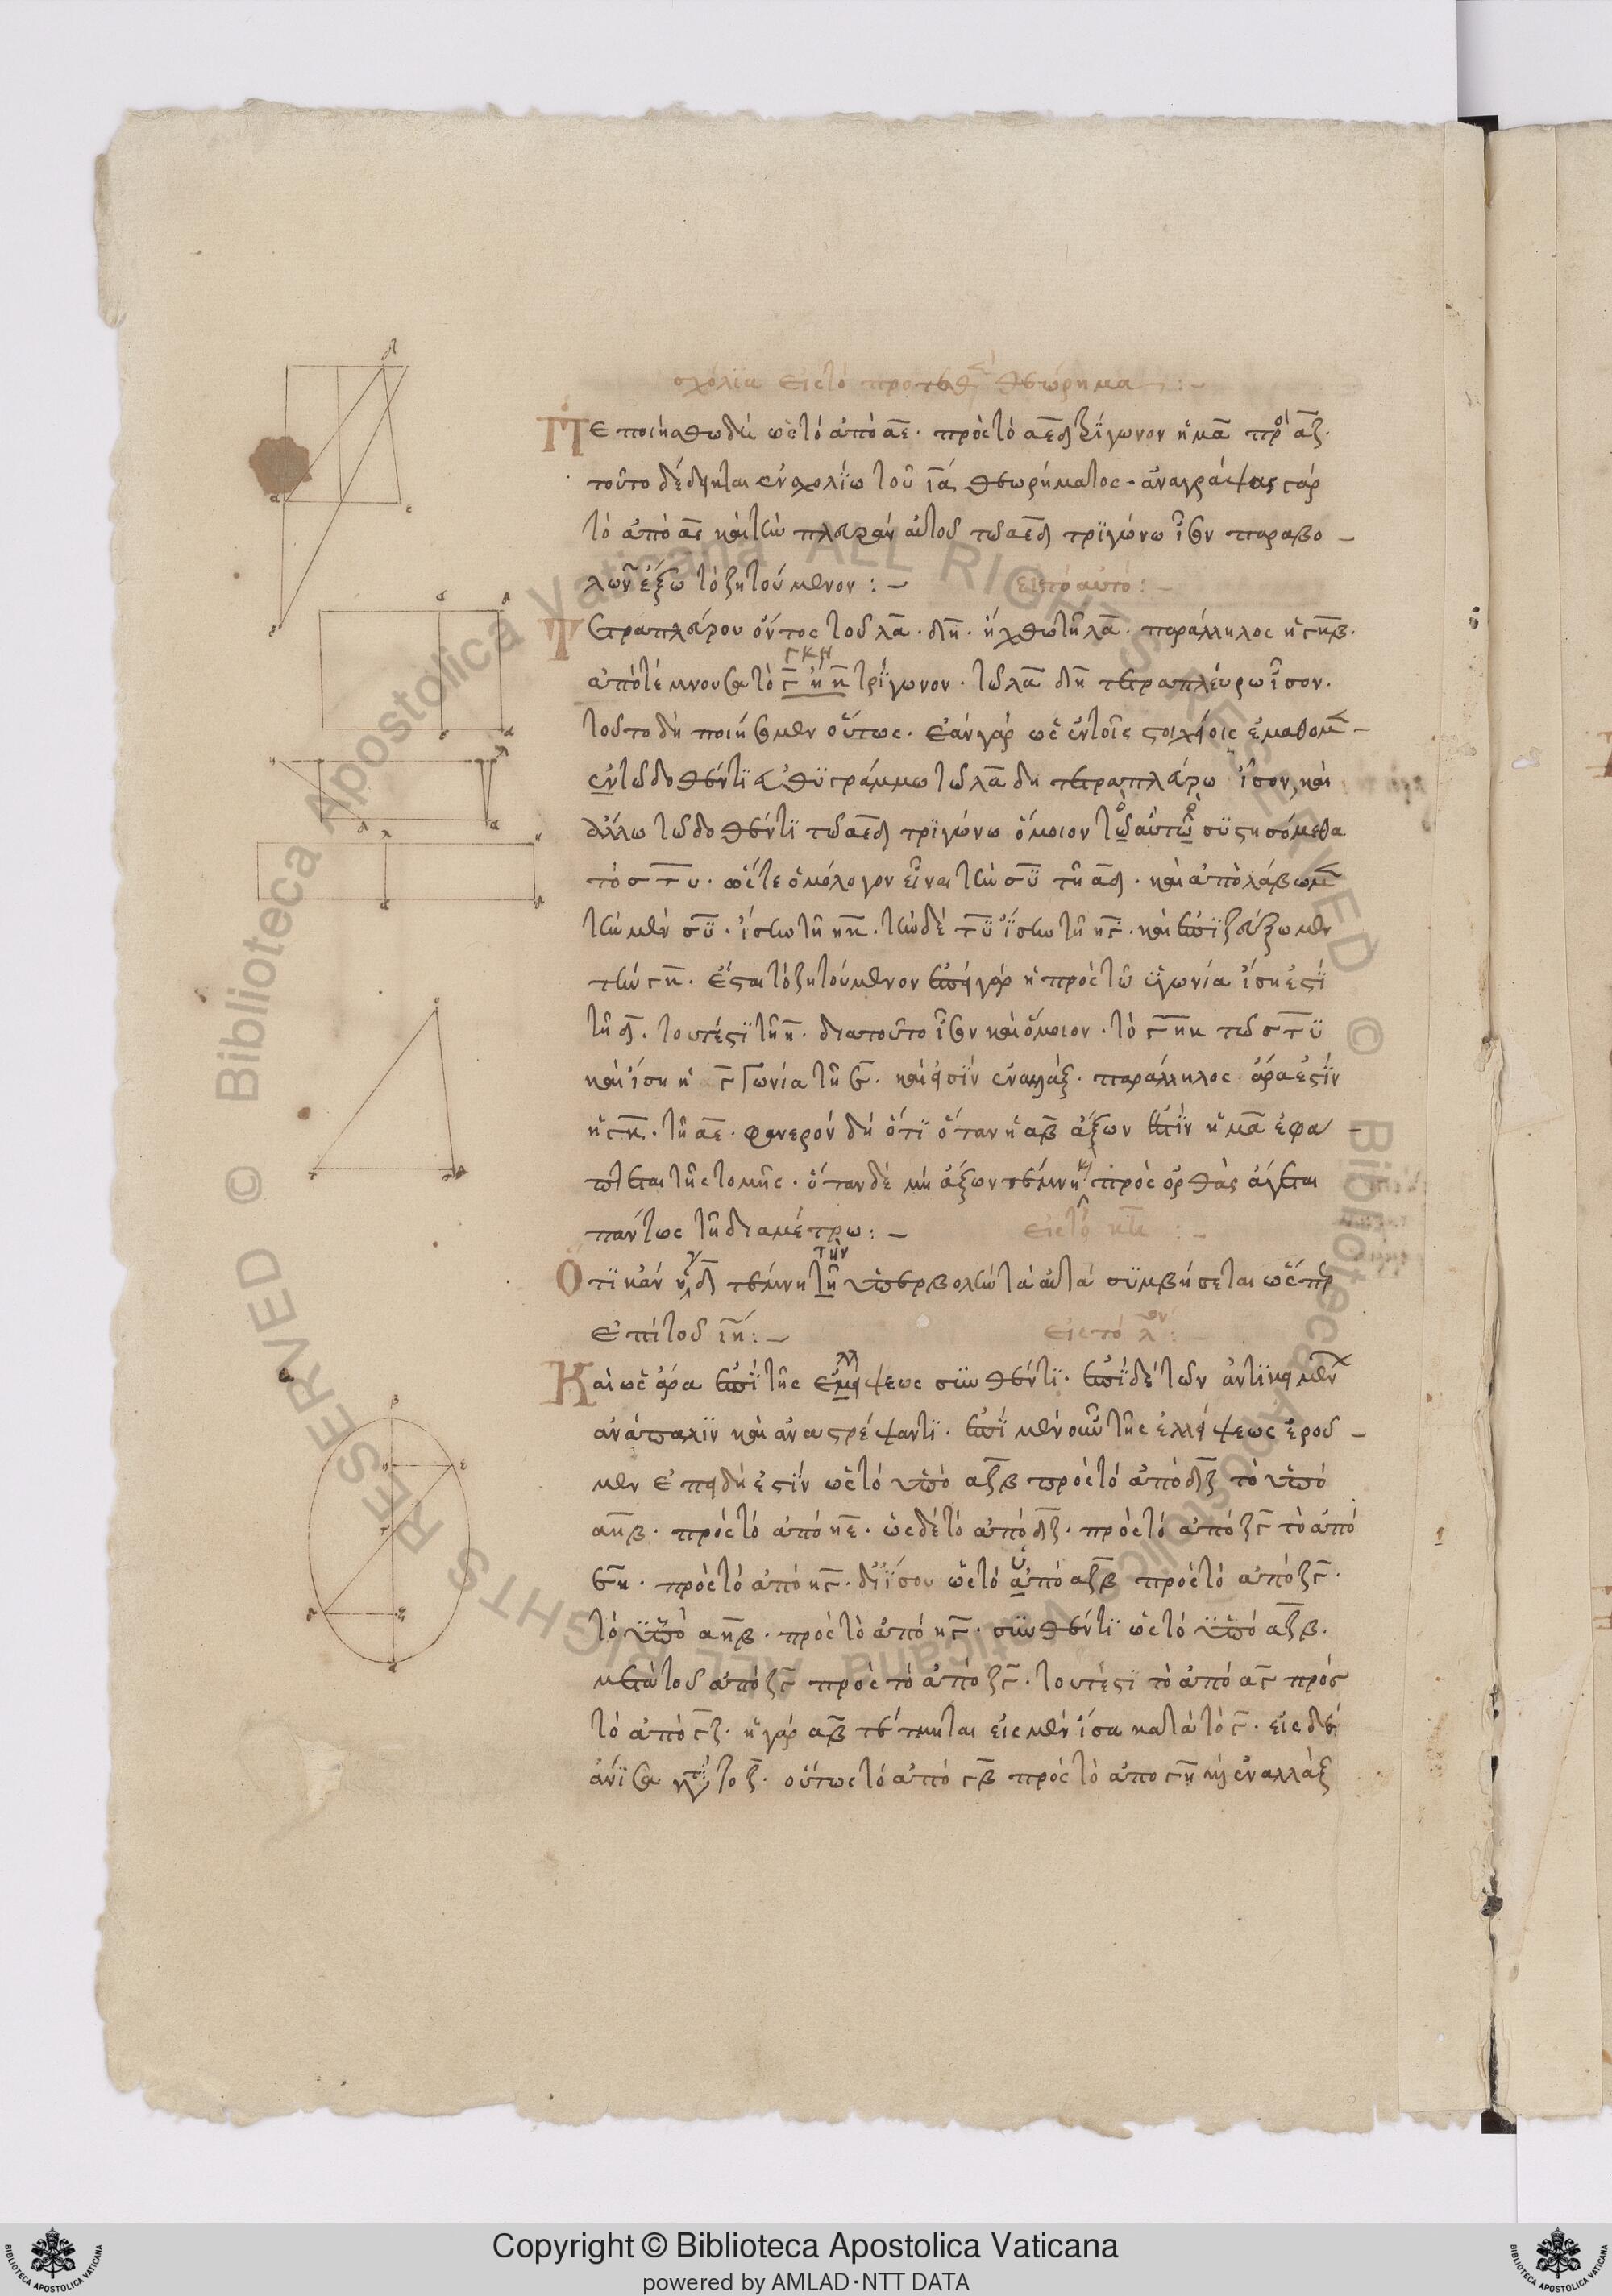 σχόλϊα εἰς τὸ προτεθὲν θεώρημα :-
Πεποιήσθω δὴ ὡς τὸ ἀπὸ αε · πρὸς τὸ αεδ τρίγωνον ἡ μα πρὸς αζ ·
τοῦτο δέδεικται ἐν σχολίω τοῦ ια θεωρήματος · ἀναγράψας γὰρ
τὸ ἀπὸ αε καὶ τὴν πλευρὰν αὐτοῦ τῶ αεδ τριγώνω ἴσον παραβα-
λὼν ἕξω τὸ ζητούμενον :- εἰς τὸ αὐτό :-
Τετραπλεύρου ὄντος τοῦ λα · δη · ἤχθω τῆ λα · παράλληλος ἡ γκβ ·
ἀποτέμνουσα τὸ γηκ τρίγωνον · τῶ λα δη τετραπλεύρω ἴσον ·
γκη
τοῦτο δὴ ποιήσομεν οὕτως · ἐὰν γὰρ ὡς ἐν τοῖς στοιχείοις ἐμάθομεν -
ἐν τῶ δοθέντι εὐθυγράμμω τῶ λα δη τετραπλεύρω ἴσον, καὶ
ἄλλω τῶ δοθέντι τῶ αεδ τριγώνω ὅμοιον τὸ αὐτὸ συστησόμεθα
τὸ στυ · ὥστε ὁμόλογον εἶναι τὴν συ τῆ αδ · καὶ ἀπολάβωμεν
τὴν μὲν συ · ἴσην τῆ ηκ · τὴν δὲ τυ ἴσην τῆ ηγ · καὶ ἐπιζεύξωμεν
τὴν γκ · ἔσται τὸ ζητούμενον ἐπεὶ γὰρ ἡ πρὸς τῶ υ γωνία ἴση ἐστὶ
τῆ δ · τουτέστι τῆ η · διὰ τοῦτο ἴσον καὶ ὅμοιον · τὸ γηκ τῶ στυ
καὶ ἴση ἡ γ γωνία τῆ ε · καί εἰσιν ἐναλλάξ · παράλληλος ἄρα ἐστὶν
ἡ γκ · τῆ αε · φανερὸν δὴ ὅτι ὅταν ἡ αβ ἄξων ἐστὶν ἡ μα ἐφα-
πτεται τῆς τομῆς · ὅταν δὲ μὴ ἄξων τέμνη πρὸς ὀρθὰς ἄγεται
πάντως τῆ διαμέτρω :- εἰς τὸ κη :-
Ὅτι κἂν ἡ γδ τέμνη τὴν ὑπερβολὴν τὰ αὐτὰ συμβήσεται ὥσπερ
τὴν
ἐπὶ τοῦ ιη :- εἰς τὸ λον :
Καὶ ὡς ἄρα ἐπὶ τῆς ἐλλείψεως συνθέντι · ἐπὶ δὲ τῶν ἀντικειμένων
ἀνάπαλιν καὶ ἀναστρέψαντι · ἐπὶ μὲν οὖν τῆς ἐλλείψεως ἐροῦ-
μεν ἐπειδή ἐστιν ὡς τὸ ὑπὸ αζβ πρὸς τὸ ἀπὸ δζ τὸ ὑπὸ
αηβ · πρὸς τὸ ἀπὸ ηε · ὡς δὲ τὸ ἀπὸ δζ · πρὸς τὸ ἀπὸ ζγ τὸ ἀπὸ
εη · πρὸς τὸ ἀπὸ ηγ · διΐσου ὡς τὸ ὑπὸ αζβ πρὸς τὸ ἀπὸ ζγ ·
τὸ ὑπὸ αηβ · πρὸς τὸ ἀπὸ ηγ · συνθέντι ὡς τὸ ὑπὸ αζβ ·
μετὰ τοῦ ἀπὸ ζγ πρὸς τὸ ἀπὸ ζγ · τουτέστι τὸ ἀπὸ αγ πρὸς
τὸ ἀπὸ γζ · ἡ γὰρ αβ τέτμηται εἰς μὲν ἴσα κατὰ τὸ γ · εἰς δὲ
ἄνισα κατὰ τὸ ζ · οὕτως τὸ ἀπὸ γβ πρὸς τὸ ἀπὸ γη καὶ ἐναλλὰξ
Copyright © Biblioteca Apostolica Vaticana
powered by AMLAD·NTT DATA